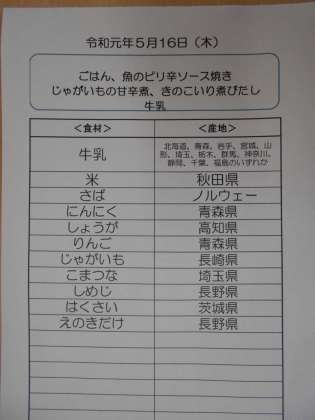 令和元年5月16日（木）
ごはん、魚のピリ辛ソース焼き
じゃがいもの甘辛煮、きのこいり煮びたし
牛乳
＜食材＞ ＜産地＞
牛乳 北海道、青森、岩手、宮城、山
形、埼玉、栃木、群馬、神奈川、
静岡、千葉、福島のいずれか
米 秋田県
さば ノルウェー
にんにく 青森県
しょうが 高知県
りんご 青森県
じゃがいも 長崎県
こまつな 埼玉県
しめじ 長野県
はくさい 茨城県
えのきだけ 長野県